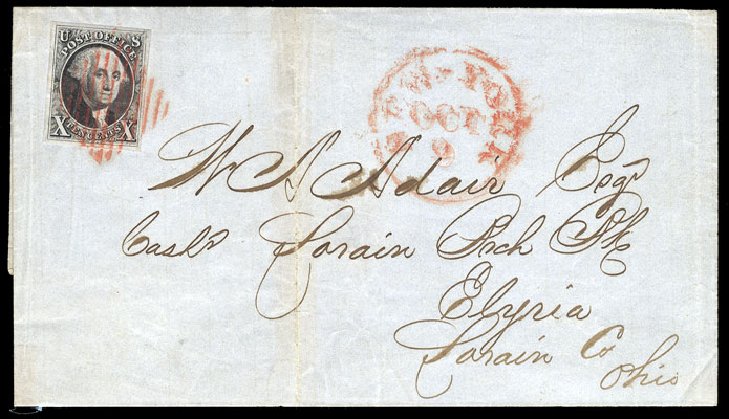 U S
POST OFFICE
X TEN CENTS X
NEW-YORK
OCT
9
W A Adair Esqr
Cashr Lorain Bch Bk
Elyria
Lorain Co
Ohio